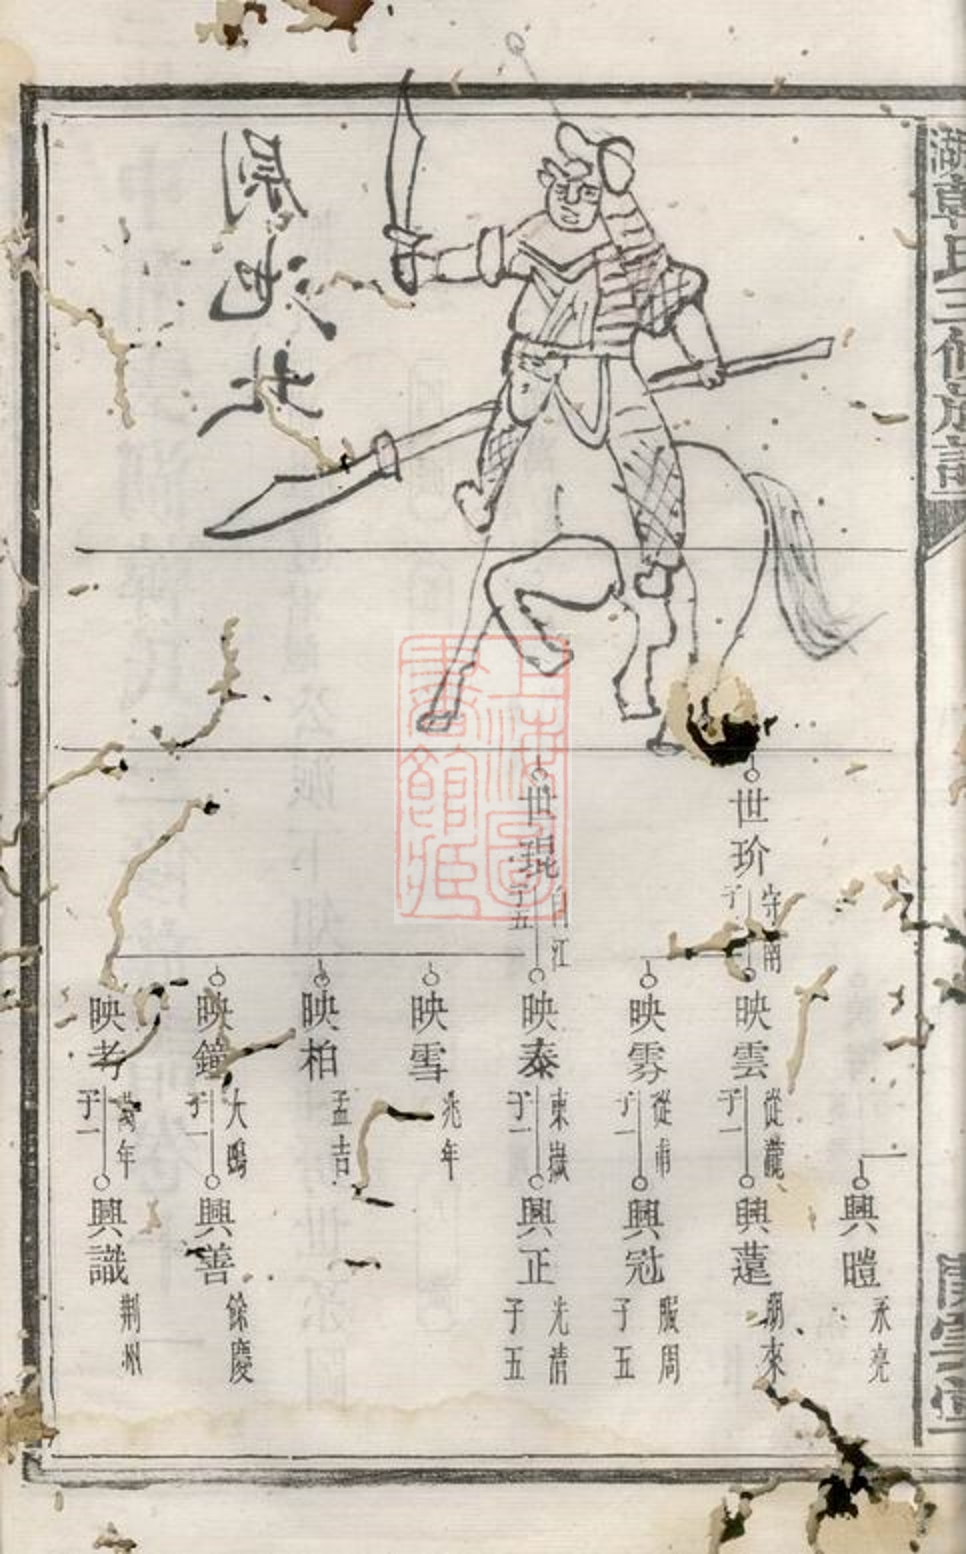 湖韓氏三修族譜
世珍
守南
映雲
從龍
子一
興暟
永亮
興蓮
朋來
映雰
從甫
子一
興冠
服周
子五
世琨
子五
映泰
東嶽
子一
興正
光清
子五
映雪
兆年
映柏
孟吉
映鐘
大鵾
子一
興善
餘慶
映考
萬年
子一
興識
荆州
上海圖書館藏